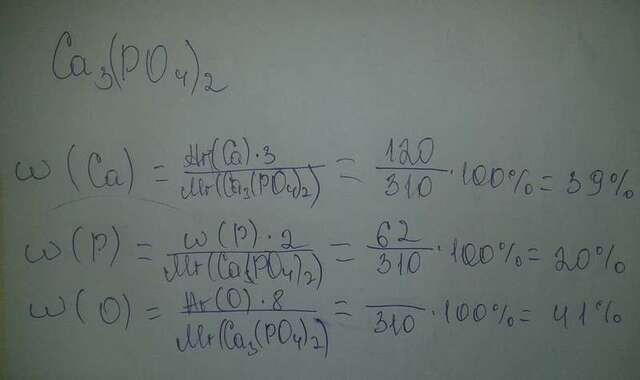 Ca₃(PO₄)₂
ω(Ca) = Ar(Ca)·3 / Mr(Ca₃(PO₄)₂) = 120/310 ·100% = 39%
ω(P) = ω(P)·2 / Mr(Ca₃(PO₄)₂) = 62/310 ·100% = 20%
ω(O) = Ar(O)·8 / Mr(Ca₃(PO₄)₂) = /310 ·100% = 41%